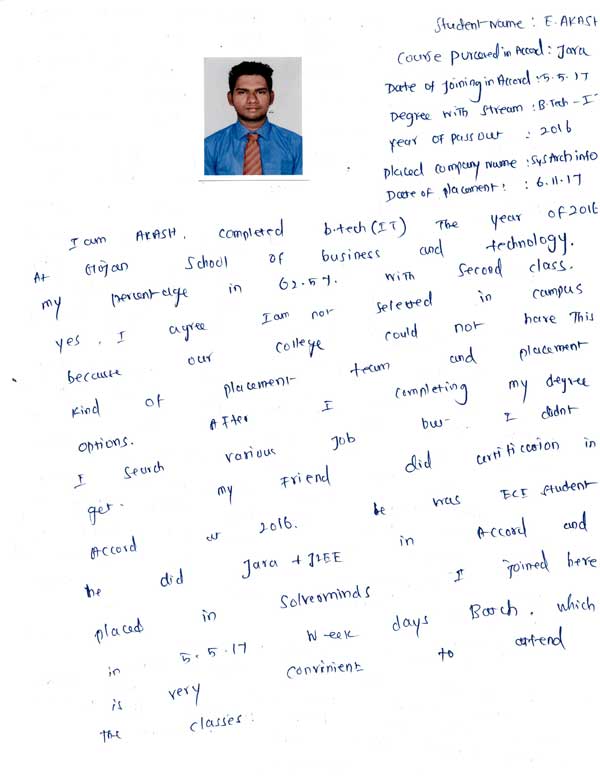 Student Name : E. AKASH
Course purcesed in Accord : Java
Date of joining in Accord : 5.5.17
Degree with Stream : B.Tech - IT
year of pass out : 2016
placed company name : SysArch info
Date of placement : : 6.11.17
I am AKASH. completed b.tech (IT) The year of 2016
At Gojan School of business and technology.
my percentage in 62.5%. with second class.
yes. I agree I am not seleted in campus
because our college could not have This
kind of placement team and placement
options. After I completing my degree
I search various job but I didnt
get. my Friend did certificcasion in
Accord at 2016. he was ECE student
he did Java + J2EE in Accord and
placed in Solveominds I joined here
in 5.5.17 Week days Batch. which
is very convinient to attend
the classes.